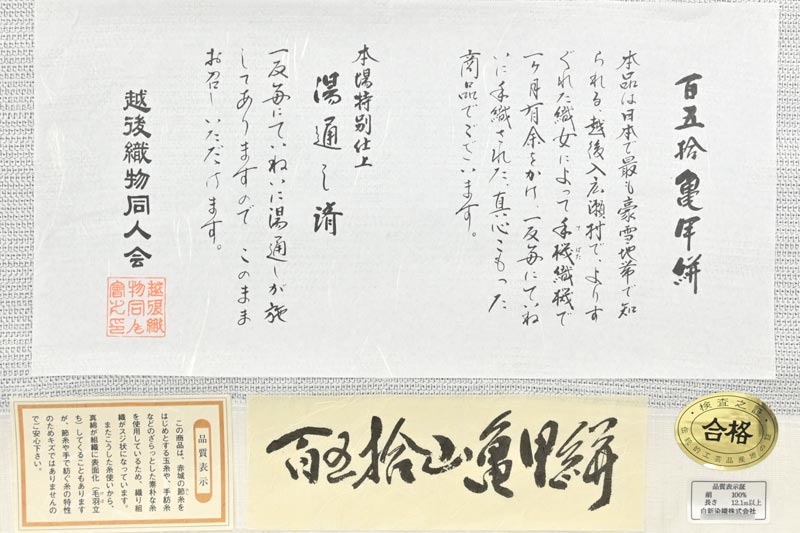 百五拾亀甲絣
本品は日本で最も豪雪地帯で知
られる、越後入広瀬村で、よりす
ぐれた織女によって手機織機で
てばた
一ヶ月有余をかけ、一反毎にていね
いに手織された、真心こもった
商品でございます。
本場特別仕上
湯通し済
一反毎にていねいに湯通しが施
してありますので このまま
お召しいただけます。
越後織物同人会
越後織
物同人
會之印
品質表示
この商品は、赤城の節糸を
はじめとする玉糸や、手紡糸
などのざらっとした素朴な糸
を使用しているため、織り組
織がスジ状になっています。
またこうした糸使いから、
真綿が組織に表面化(毛羽立
ち)してくることもあります
が、節糸や手で紡ぐ糸の特性
のためキズではありませんの
でご安心下さい。
百五拾山亀甲絣
検査之証
合格
伝統的工芸品産地の
品質表示証
絹 100%
長さ 12.1m以上
白新染織株式会社